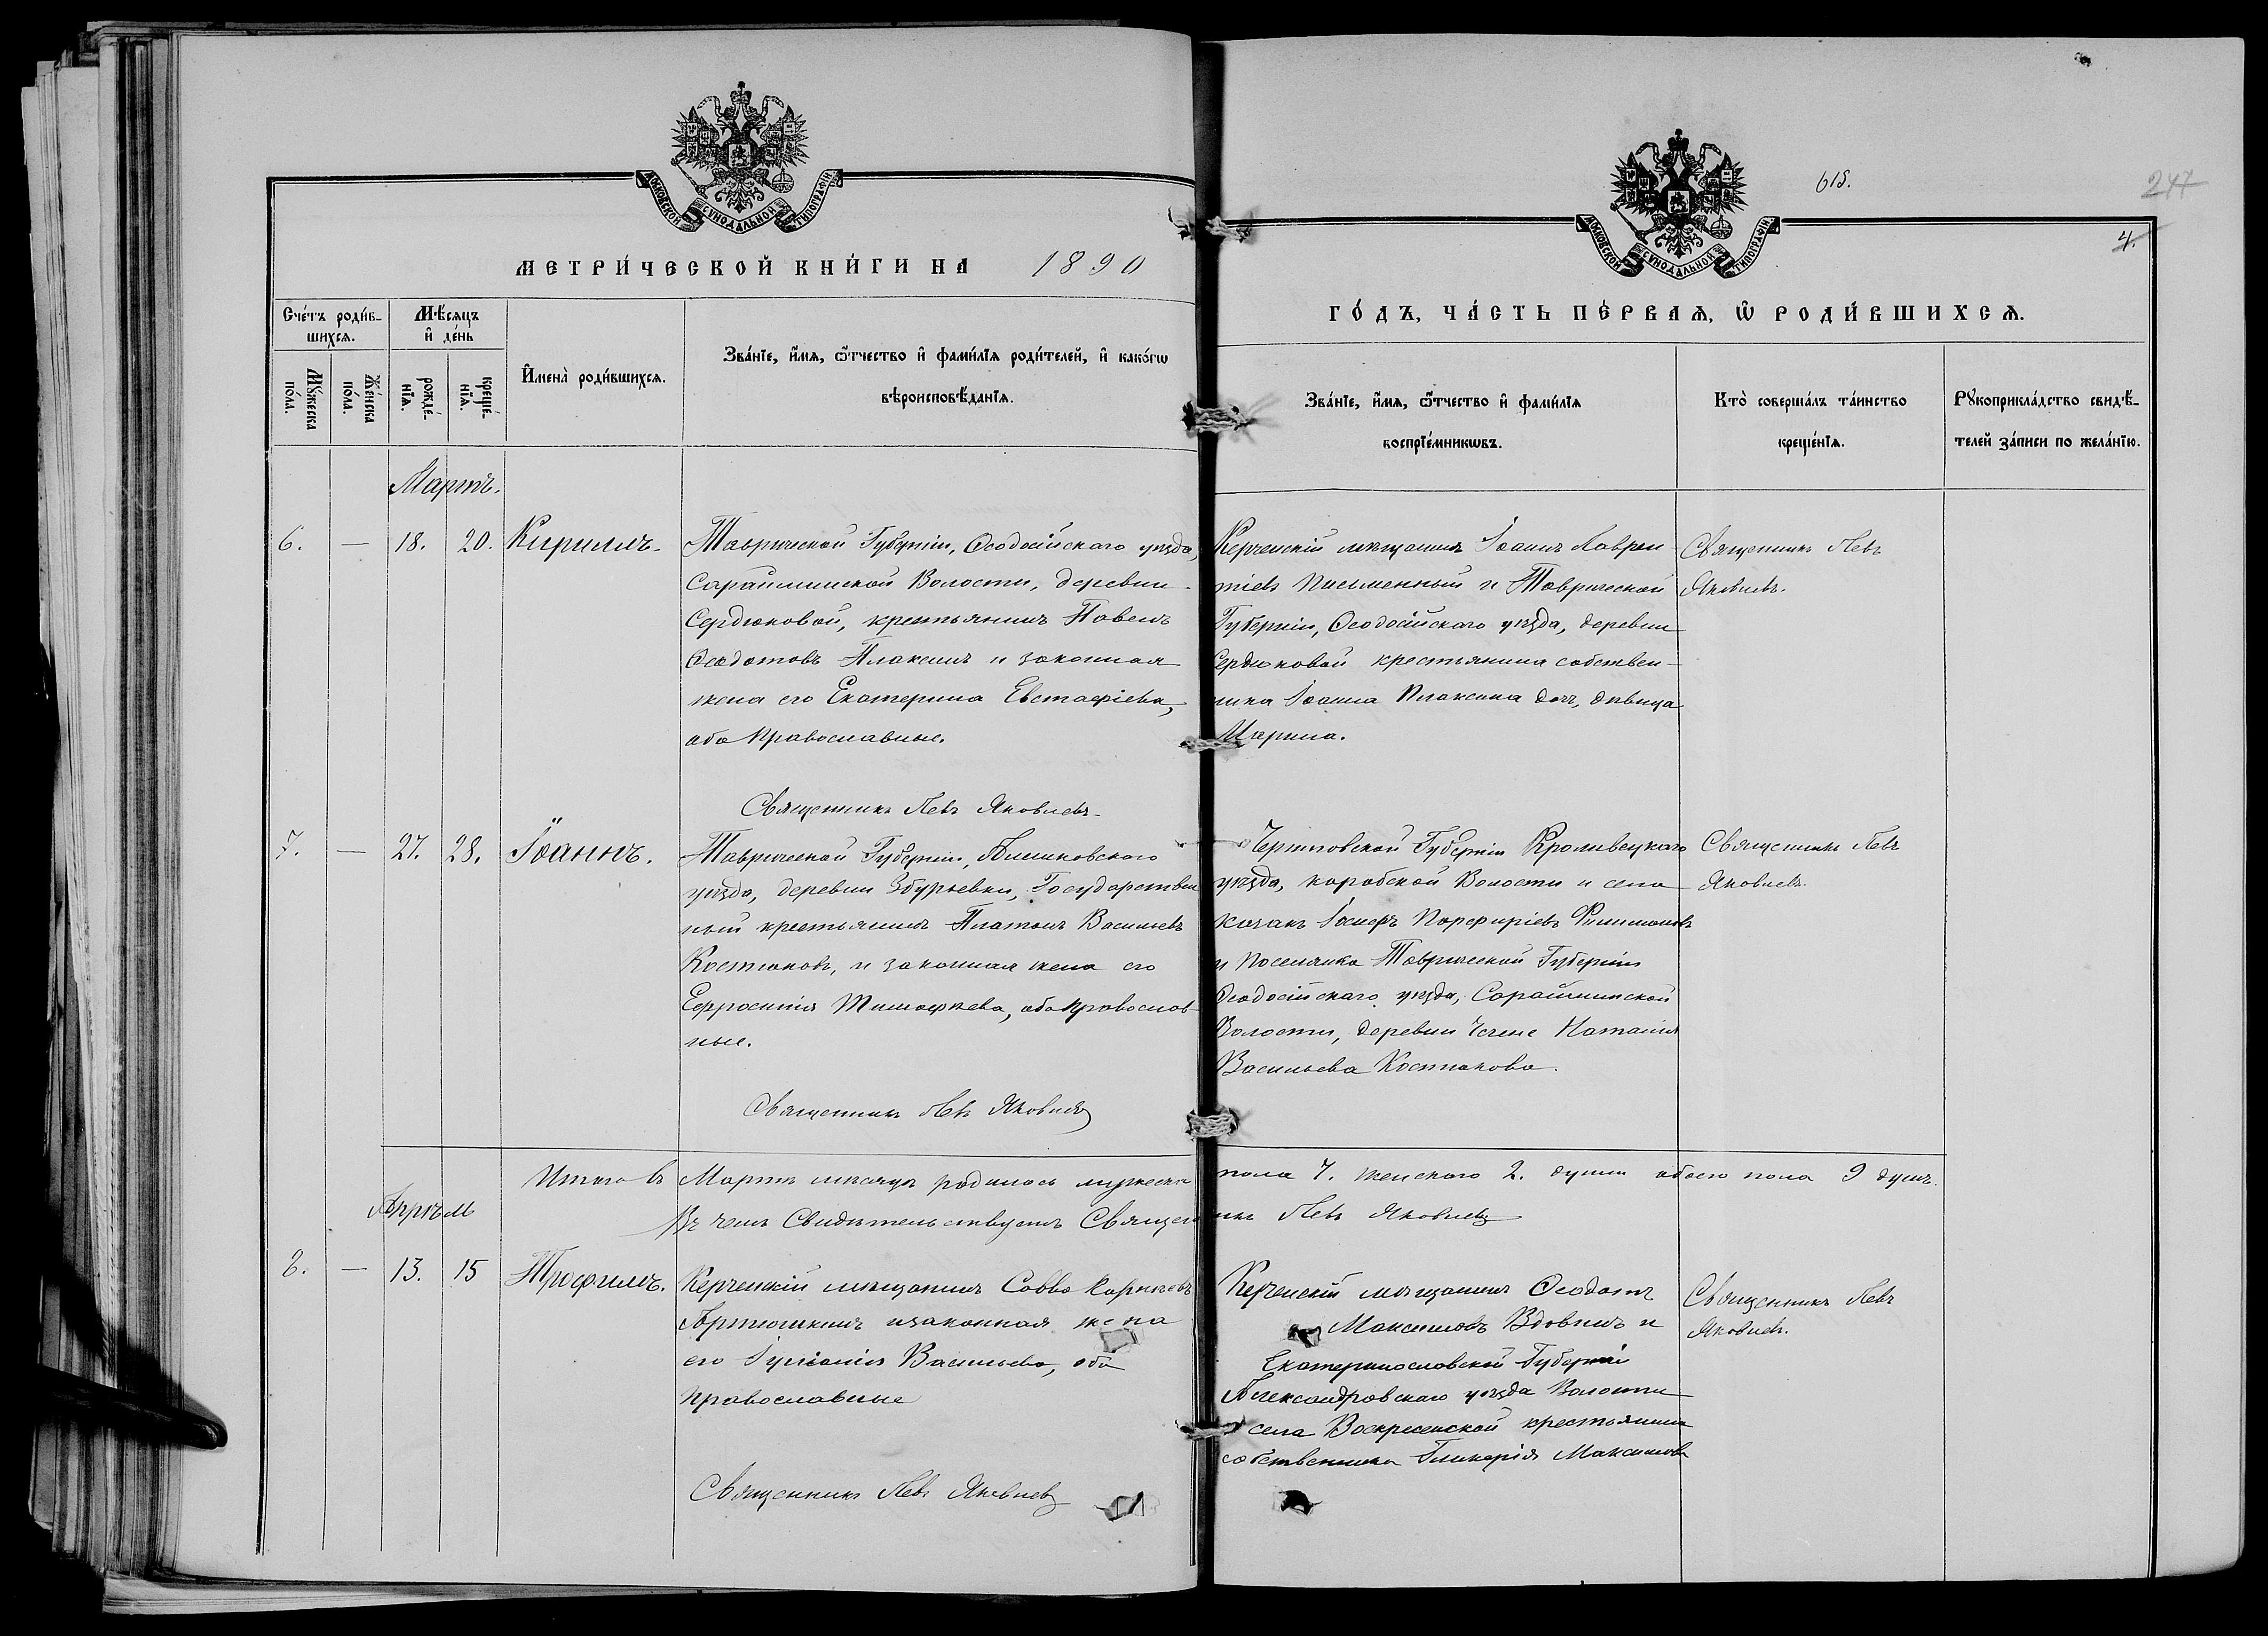 МОСКОВСКОЙ СѴНОДАЛЬНОЙ ТИПОГРАФІИ
МЕТРИ́ЧЕСКОЙ КНИ́ГИ НА 1890
Сче́тъ роди́вшихсѧ.
Мꙋ́жеска по́ла.
Же́нска по́ла.
Мѣ́сѧцъ и҆ де́нь
рожде́нїѧ.
креще́нїѧ.
И҆мена̀ роди́вшихсѧ.
Зва́нїе, и҆́мѧ, ѻ҆́тчество и҆ фами́лїѧ роди́телей, и҆ како́гѡ
вѣроисповѣ́данїѧ.
Мартъ.
6. — 18. 20. Кириллъ.
Таврической Губерніи, Ѳеодосійскаго уѣзда,
Сарайминской Волости, деревни
Сердюковой, крестьянинъ Павелъ
Ѳеодотовъ Плаксинъ и законная
жена его Екатерина Евстафіева,
оба православные.
Священникъ Левъ Яковлевъ
7. — 27. 28. Іоаннъ.
Таврической Губерніи, Алешковскаго
уѣзда, деревни Збурьевки, Государствен
ный крестьянинъ Платонъ Васильевъ
Костюковъ, и законная жена его
Евфросинія Тимофеева, оба православ-
ные.
Священникъ Левъ Яковлевъ
Итого въ Мартѣ мѣсяцѣ родилось мужеска
Въ чемъ Свидѣтельствуетъ Священ
Апрѣль
8. — 13. 15 Трофимъ.
Керченскій мѣщанинъ Савва Карповъ
Артюшкинъ изаконная жена
его Іуліанія Васильева, оба
православные
Священникъ Левъ Яковлевъ
618.
247
4.
МОСКОВСКОЙ СѴНОДАЛЬНОЙ ТИПОГРАФІИ
ГО́ДЪ, ЧА́СТЬ ПЕ́РВАѦ, Ѡ҆ РОДИ́ВШИХСѦ.
Зва́нїе, и҆́мѧ, ѻ҆́тчество и҆ фами́лїѧ
воспрїе́мникѡвъ.
Кто̀ соверша́лъ та́инство
креще́нїѧ.
Рꙋкоприкла́дство свидѣ́-
телей за́писи по жела́нїю.
Керченскій мѣщанинъ Іоаннъ Лаврен
тіевъ Письменный и Таврической
Губерніи, Ѳеодосійскаго уѣзда, деревни
Сердюковой крестьянина собствен-
ника Іоанна Плаксина дочь, дѣвица
Марина.
Священникъ Левъ
Яковлевъ.
Черниговской Губерніи Кролевецкаго
уѣзда, коробской Волости и села
казакъ Іосифъ Порфиріевъ Филимоновъ
и поселянка Таврической Губерніи
Ѳеодосійскаго уѣзда, Сарайминской
Волости, деревни Чегене Наталія
Васильева Костюкова.
Священникъ Левъ
Яковлевъ.
пола 7. женскаго 2. души обоего пола 9 душъ.
никъ Левъ Яковлевъ
Керченскій мѣщанинъ Ѳеодотъ
Максимовъ Вдовинъ и
Екатеринославской Губерніи
Александровскаго уѣзда Волости
и села Воскресенской крестьянина
собственника Гликерія Максимова
Священникъ Левъ
Яковлевъ.